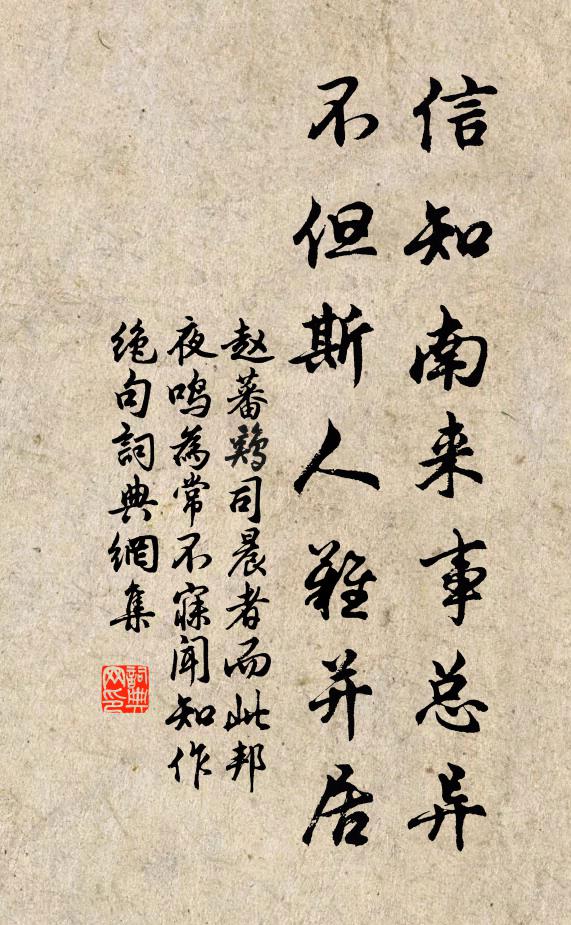 信知南来事总异
不但斯人难并居
赵蕃鸡司晨者而此邦
夜鸣为常不寐闻知作
绝句詞典網集
詞典
网印